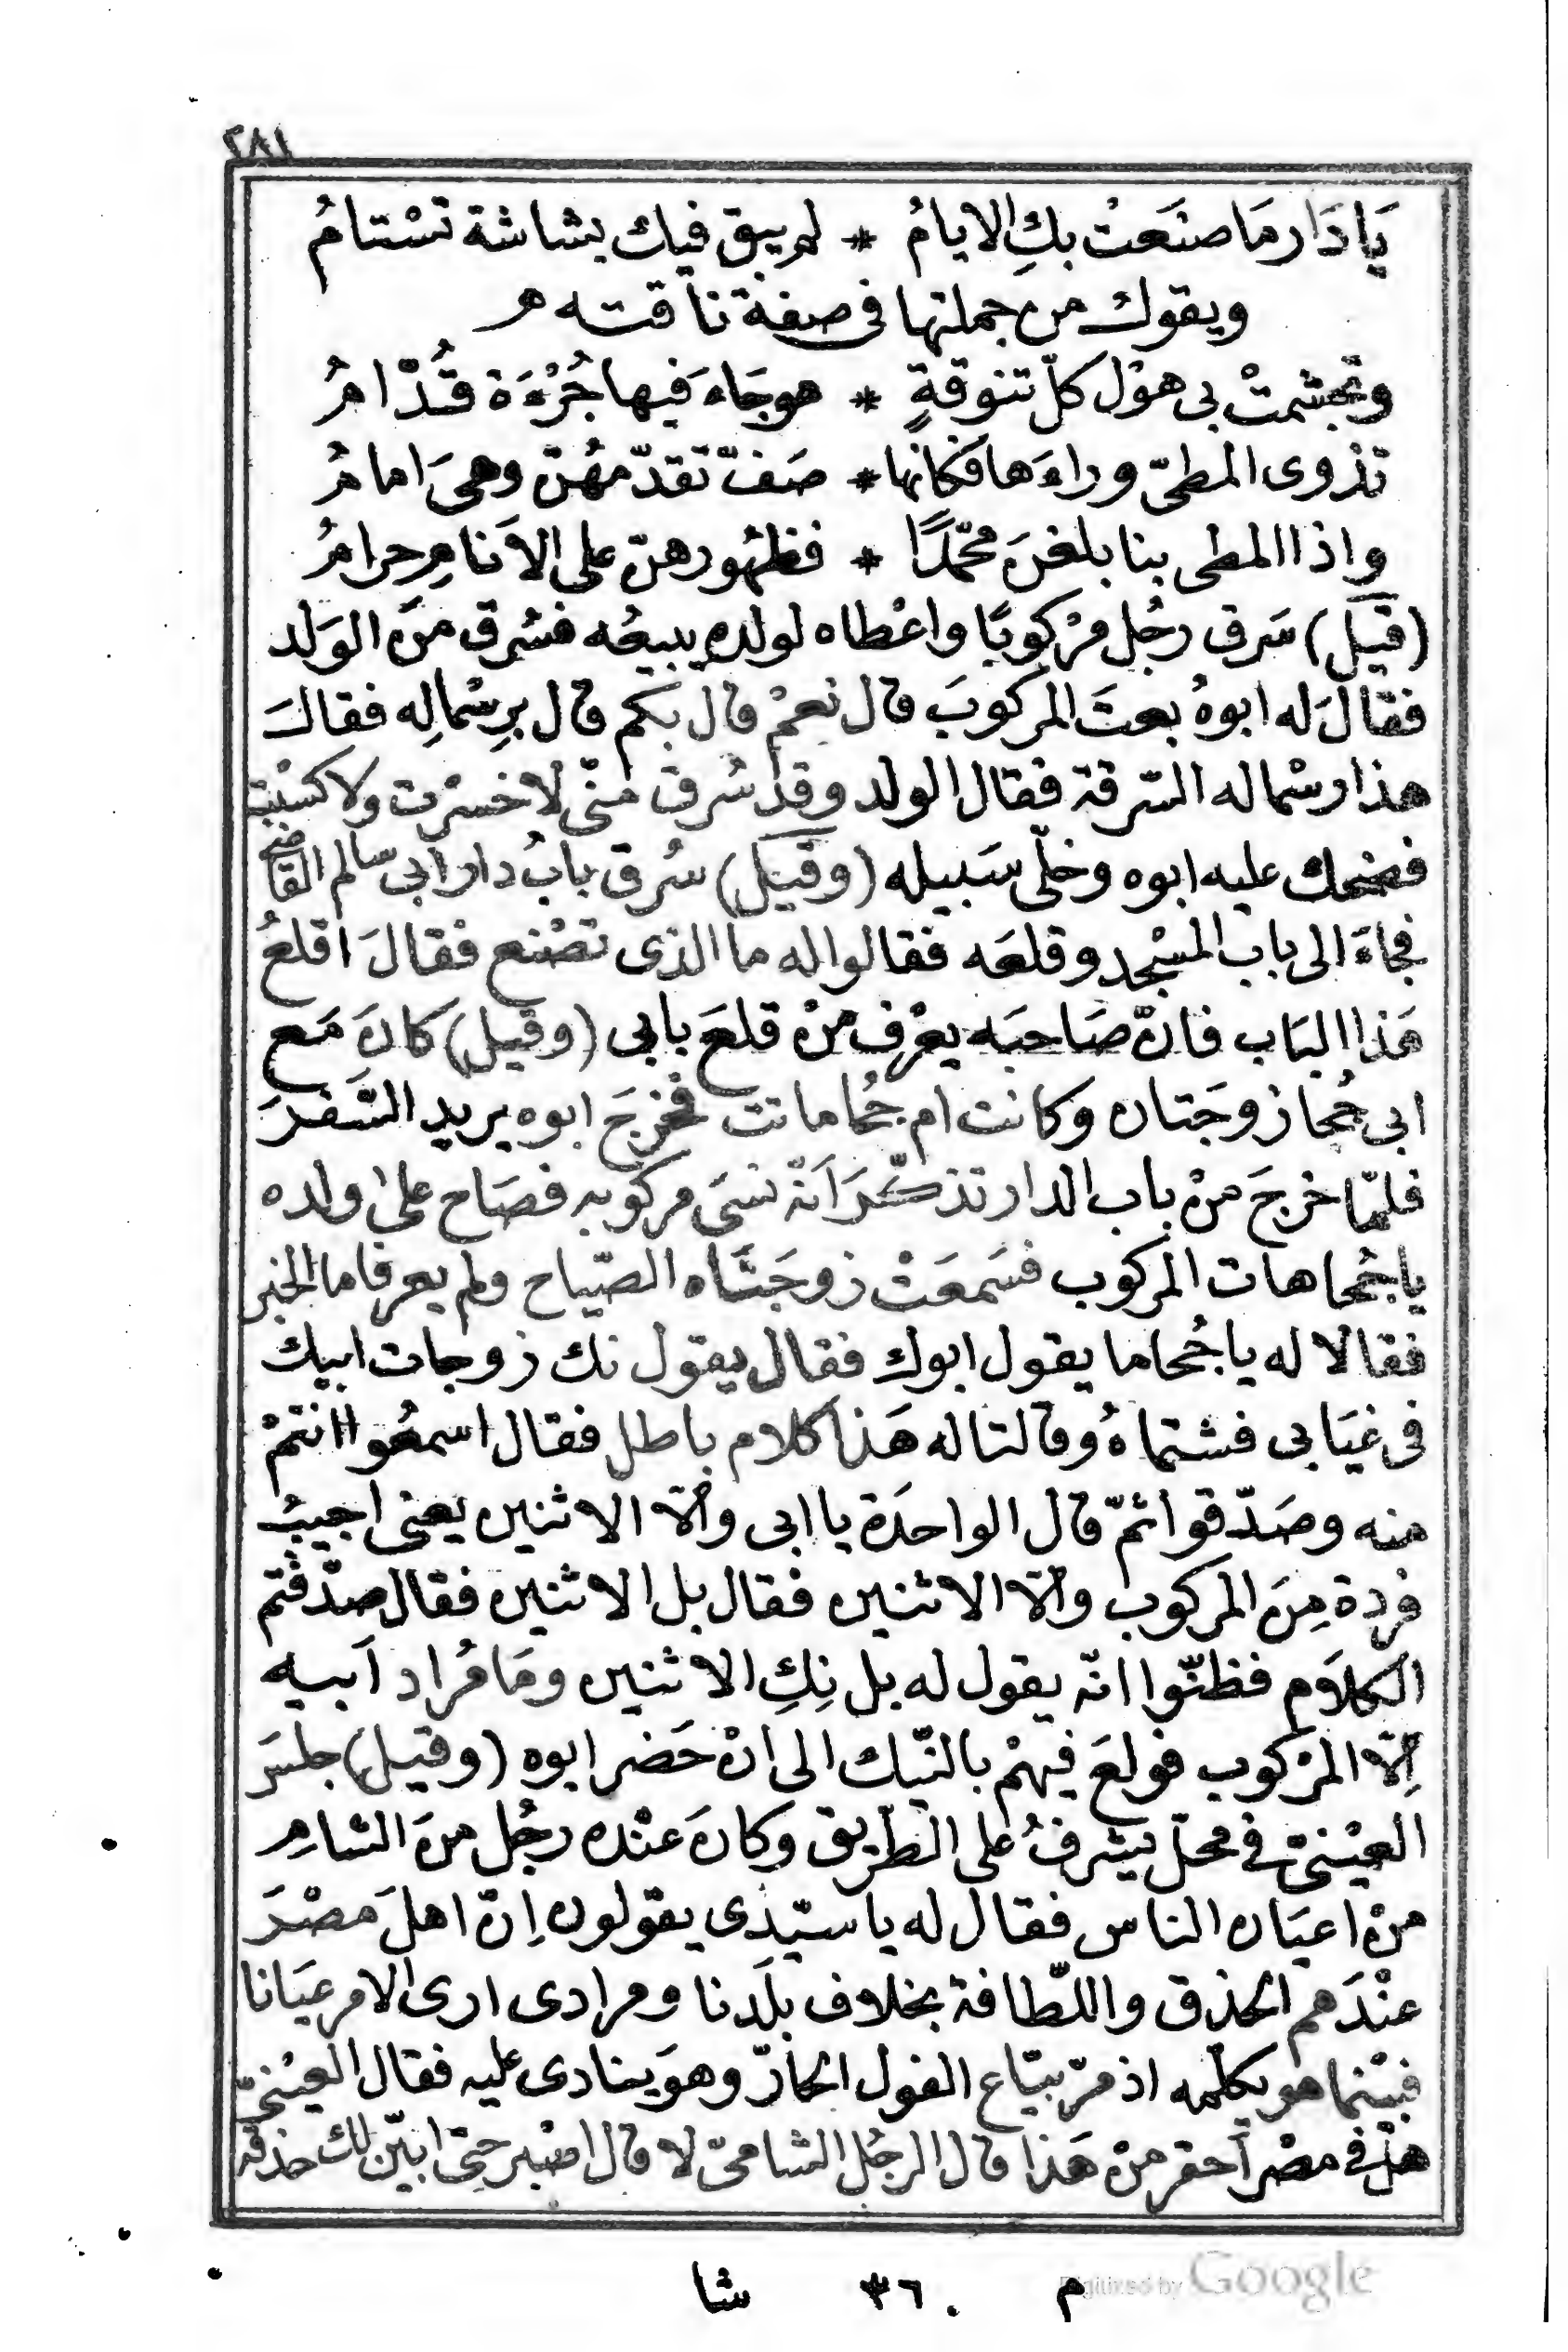 ٢٨١
يَا دَار مَا صنَعَتْ بكِ الايامُ * لم يبق فيك بشاشة تسْتامُ
ويقول من جملتها فى صفة ناقته هـ
وتجشمتْ بى هوْل كلّ تنوفةٍ * هوجَاء فيها جُرْءَة قُدّامُ
تذوى المطىّ وراءَها فكانها * صَفّ تقدّمهُنّ وهىَ امامُ
واذا المطى بنا بلغنَ محمّدًا * فظهُورهنّ على الاَنامِ حرامُ
(قيل) سَرق رجُل مرْكوبًا واعْطاه لولدهِ يبيعُه فسُرق منَ الوَلد
فقالَ له ابوهُ بعتَ المركوبَ قال نعمْ قال بكم قال برسْمالِه فقالَ
هذا رسْماله السّرقة فقال الولد وقد سُرق منّى لا خسرْت ولا كسْبت
فضحك عليه ابوه وخلّى سَبيله (وقيل) سُرق بابُ دار ابى سالم القاضى
فجاءَ الى باب المسْجد وقلعَه فقالوا له ما الذى تصْنع فقالَ اقلعُ
هَذا البَاب فانّ صَاحبَه يعْرف منْ قلعَ بابى (وقيل) كانَ مَع
ابى جُحا زوجَتان وكانت ام جُحا ماتت فخرجَ ابوه يريد السَّفرَ
فلمّا خرجَ منْ باب الدار تذكّرَ اَنّه نسىَ مركوبه فصَاح على ولده
يا جُحا هات المركوب فسَمعَتْ زوجَتَاه الصّياح ولم يعرفا ما الخبر
فقالا له يا جُحا ما يقول ابوك فقال يقول نك زوجات ابيك
فى غيَابى فشتماهُ وقالتا له هَذا كلام باطل فقال اسمعُوا انتمْ
منه وصَدّقوا ثمّ قال الواحدَة يا ابى والّا الاثنين يعنى اجيبُ
فردة مِنَ المركوب والّا الاثنين فقال بل الاثنين فقال صدّقتم
الكلاَم فظنّوا انّه يقول له بل نِكِ الاثنين ومَا مُراد اَبيه
اِلّا المرْكوب فولعَ فيهمْ بالنّيك الى انْ حَضر ابوه (وقيل) جلسَ
العيْنىّ فى محلّ يشرفُ على الطّريق وكانَ عنْده رجُل منَ الشامِ
منْ اعيَان الناس فقال له يا سيّدى يقولون اِنّ اهلَ مصْرَ
عنْدَهم الحذق واللّطافة بخلاف بلَدنا ومرادى ارى الامر عيَانا
فبيْنما هو يكلّمه اذ مرّ بيّاع الفول الحارّ وهوَ ينادى عليه فقال العيْنىّ
هلْ فى مصْر اَحقر منْ هَذا قال الرجُل الشامىّ لا قال اصْبر حتى ابيّن لك حذقه
م ٣٦ شا
Digitized by Google